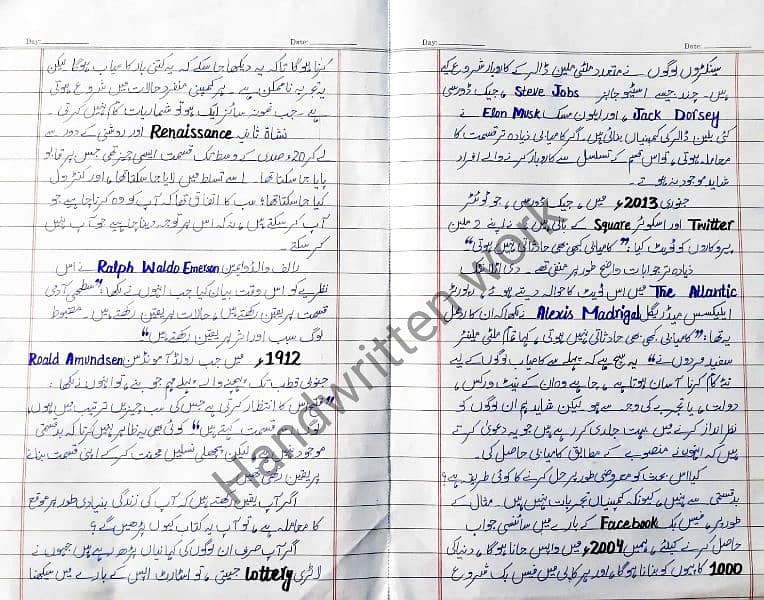 Day: Date:
سینکڑوں لوگوں نے متعدد ملٹی ملین ڈالر کے کاروبار شروع کیے
ہیں۔ چند جیسے اسٹیو جابز Steve Jobs ، جیک ڈورسی
Jack Dorsey ، اور ایلون مسک Elon Musk نے
کئی بلین ڈالر کی کمپنیاں بنائی ہیں۔ اگر کامیابی زیادہ تر قسمت کا
معاملہ ہوتی، تو اس قسم کے تسلسل سے کاروبار کرنے والے افراد
شاید موجود نہ ہوتے۔
جنوری 2013ء میں، جیک ڈورسی، جو ٹوئٹر
Twitter اور اسکوئر Square کے بانی ہیں، نے اپنے 2 ملین
پیروکاروں کو ٹویٹ کیا: "کامیابی کبھی بھی حادثاتی نہیں ہوتی"
زیادہ تر جوابات واضح طور پر منفی تھے۔ دی اٹلانٹک
The Atlantic میں اس ٹویٹ کا حوالہ دیتے ہوئے، رپورٹر
ایلیکسس میڈریگل Alexis Madrigal نے لکھا کہ ان کا ردعمل
یہ تھا: "کامیابی کبھی بھی حادثاتی نہیں ہوتی، کہا تمام ملٹی ملینئر
سفید مردوں نے" یہ سچ ہے کہ پہلے سے کامیاب لوگوں کے لیے
نئے کام کرنا آسان ہوتا ہے، چاہے وہ ان کے نیٹ ورکس،
دولت، یا تجربے کی وجہ سے ہو۔ لیکن شاید ہم ان لوگوں کو
نظر انداز کرنے میں بہت جلدی کر رہے ہیں جو یہ دعویٰ کرتے
ہیں کہ انہوں نے منصوبے کے مطابق کامیابی حاصل کی۔
کیا اس بحث کو معروضی طور پر حل کرنے کا کوئی طریقہ ہے؟
بدقسمتی سے نہیں، کیونکہ کمپنیاں تجربات نہیں ہیں۔ مثال کے
طور پر، فیس بک Facebook کے بارے میں سائنسی جواب
حاصل کرنے کیلئے، ہمیں 2004ء میں واپس جانا ہوگا، دنیا کی
1000 کاپیوں کو بنانا ہوگا، اور ہر کاپی میں فیس بک شروع
Day: Date:
کرنا ہوگا تاکہ یہ دیکھا جا سکے کہ یہ کتنی بار کامیاب ہوگا لیکن
یہ تجربہ ناممکن ہے۔ ہر کمپنی منفرد حالات میں شروع ہوتی
ہے۔ جب نمونہ سائز ایک ہو تو شماریات کام نہیں کرتی۔
نشاۃ ثانیہ Renaissance اور روشنی کے دور سے
لے کر 20ء صدی کے وسط تک قسمت ایسی چیز تھی جس پر قابو
پایا جا سکتا تھا۔ اسے تسلط میں لایا جا سکتا تھا، اور کنٹرول
کیا جا سکتا تھا؛ سب کا اتفاق تھا کہ آپ کو وہ کرنا چاہیے جو
آپ کر سکتے ہیں، نہ کہ اس پر توجہ دینا چاہیے جو آپ نہیں
کر سکتے۔
رالف والڈو ایمرسن Ralph Waldo Emerson نے اس
نظریے کو اس وقت بیان کیا جب انہوں نے لکھا: "سطحی آدمی
قسمت پر یقین رکھتے ہیں، حالات پر یقین رکھتے ہیں۔ مضبوط
لوگ سبب اور اثر پر یقین رکھتے ہیں"
1912ء میں جب روالڈ آمونڈسن Roald Amundsen
جنوبی قطب تک پہنچنے والے پہلے مہم جو بنے، تو انہوں نے لکھا:
"فتح اس کا انتظار کرتی ہے جس کی سب چیزیں ترتیب میں ہوں،
لوگ اسے قسمت کہتے ہیں" کوئی بھی یہ ظاہر نہیں کرتا کہ بدقسمتی
موجود نہیں ہے، لیکن پچھلی نسلیں محنت کر کے اپنی قسمت بنانے
پر یقین رکھتی تھیں۔
اگر آپ یقین رکھتے ہیں کہ آپ کی زندگی بنیادی طور پر موقع
کا معاملہ ہے، تو آپ یہ کتاب کیوں پڑھیں گے؟
اگر آپ صرف ان لوگوں کی کہانیاں پڑھ رہے ہیں جنہوں نے
لاٹری lottery جیتی، تو اسٹارٹ اپس کے بارے میں سیکھنا
Handwritten work